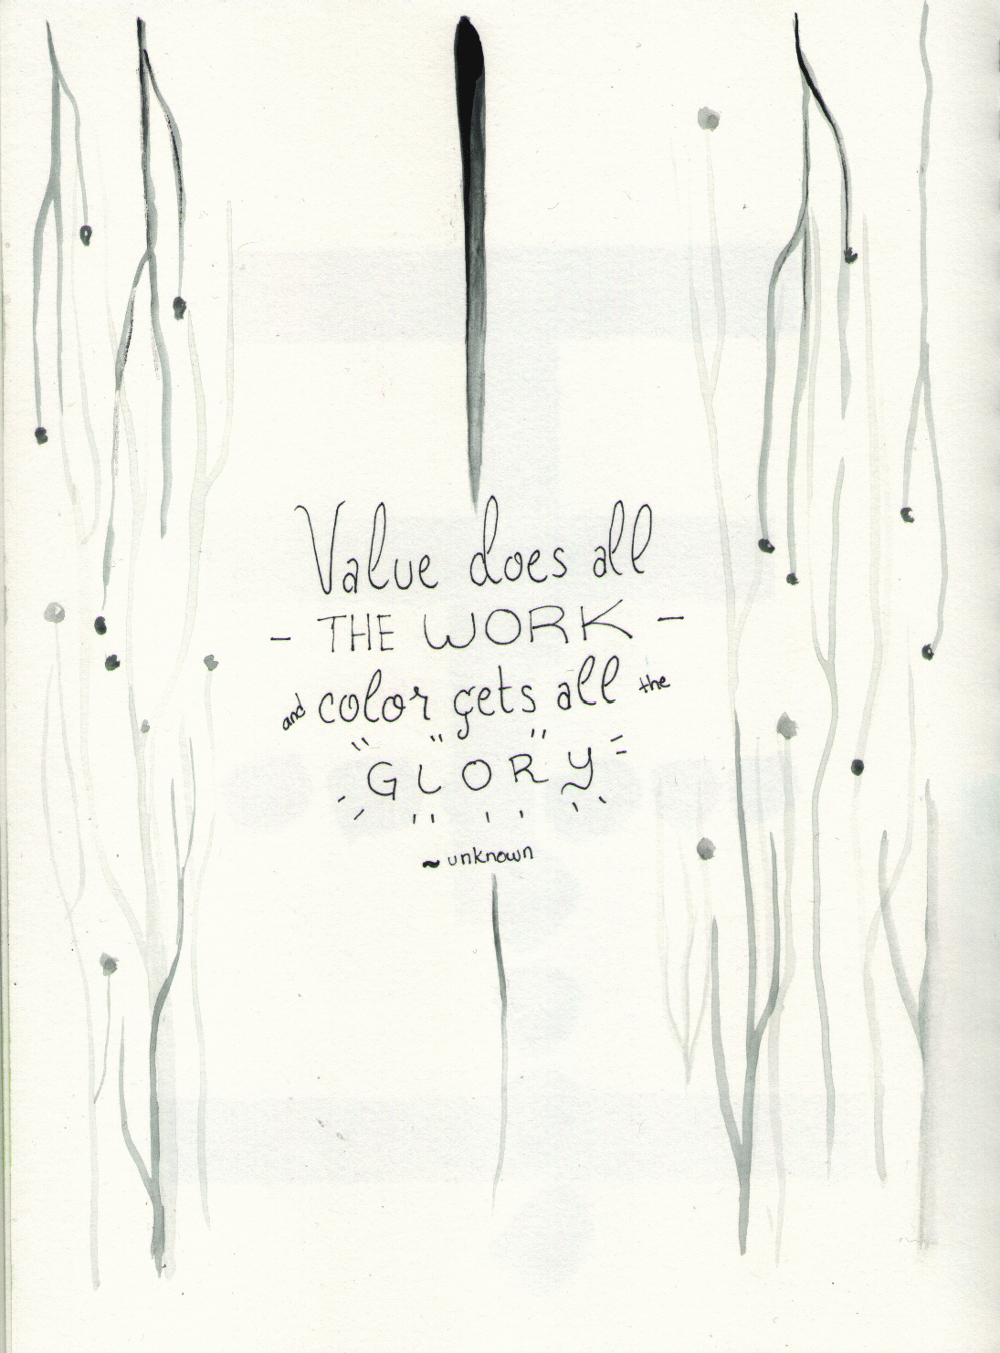 Value does all
- THE WORK -
and color gets all the
"GLORY"
~ unknown